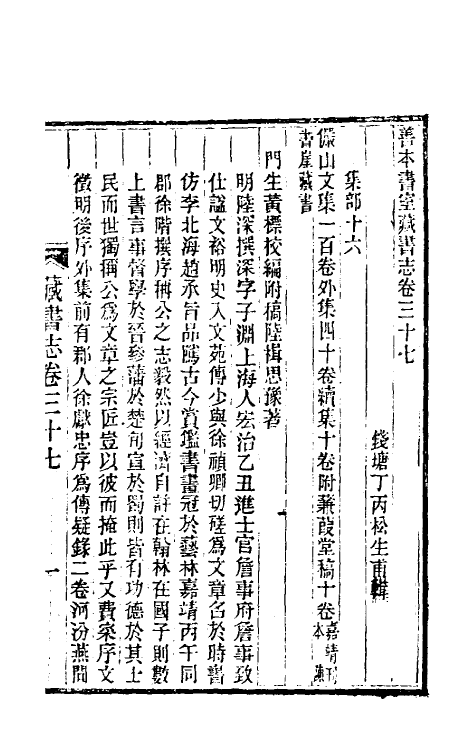 善本書室藏書志卷三十七
錢塘丁丙松生甫輯
集部十六
儼山文集一百卷外集四十卷續集十卷附蒹葭堂稿十卷嘉靖刊本
書崖藏書
門生黃標校編附稿陸楫思豫著
明陸深撰深字子淵上海人宏治乙丑進士官詹事府詹事致
仕謚文裕明史入文苑傳少與徐禎卿切磋爲文章名於時書
仿李北海趙承旨品鷗古今賞鑑書畫冠於藝林嘉靖丙午同
郡徐階撰序稱公之志毅然以經濟自許在翰林在國子則數
上書言事督學於晉參藩於楚旬宣於蜀則皆有功德於其士
民而世獨稱公爲文章之宗匠豈以彼而掩此乎又費寀序文
徵明後序外集前有郡人徐獻忠序爲傳疑錄二卷河汾燕閒
藏書志卷三十七
一